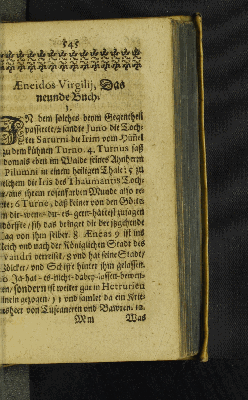 545
Æneidos Virgilij, Das
neunde Buch.
1.
IN dem solches beym Gegentheil
passierte/ 2 sandte Juno die Toch-
ter Saturni die Irim vom Hiṁel
zu dem kühnen Turno. 4. Turnus saß
domals eben im Walde seines Anherrn
Pilumni in einem heiligen Thale: 5 zu
welchem die Iris des Thaumantis Toch-
ter/ aus ihrem rosinfarben Munde also re-
te: 6 Turne/ daß keiner von den Götte
n dir-wen- du- es- gern- hättest zusagen
dörffte/ sih das bringet die herzugehende
Tag von ihm selber. 8 Æneas 9 ist un
leich und nach der Königlichen Stadt des
vandri verreiset/ 8 und hat seine Stadt/
Völcker/ und Schiffe hinter ihm gelassen.
Ja- hat- es- nicht- dabey- lassen- bewen-
en/ sondern ist weiter gar in Hetrurien
hinein gezogen/ 11 und samlet da ein Krie-
sheer von Tuscenern und Bawren. 12.
Mm Was